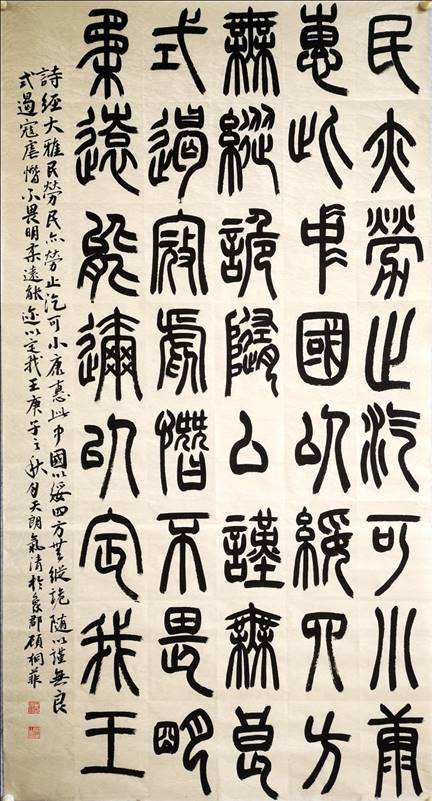 民亦勞止汔可小康
惠此中國以綏四方
無縱詭隨以謹無良
式遏寇虐憯不畏明
柔遠能邇以定我王
詩經大雅民勞民亦勞止汔可小康惠此中國以綏四方無縱詭隨以謹無良
式遏寇虐憯不畏明柔遠能邇以定我王庚子之秋天朗氣清於象郡顧桐菲